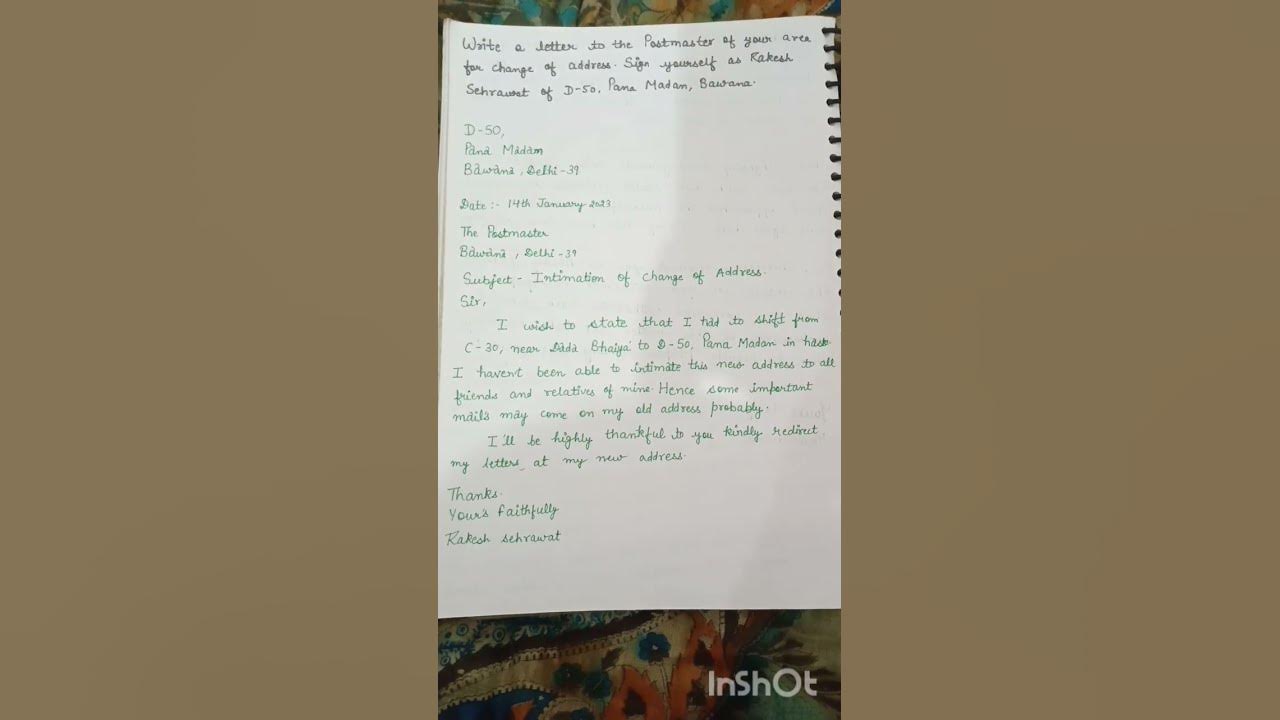 Write a letter to the Postmaster of your area
for change of address. Sign yourself as Rakesh
Sehrawat of D-50, Pana Madan, Bawana.
D-50,
Pana Madam
Bawana, Delhi-39
Date:- 14th January 2023
The Postmaster
Bawana, Delhi-39
Subject:- Intimation of Change of Address.
Sir,
I wish to state that I had to shift from
C-30, near Dada Bhaiya to D-50, Pana Madan in
I haven't been able to intimate this new address to all
friends and relatives of mine. Hence some important
mails may come on my old address probably.
I'll be highly thankful to you kindly redirect
my letters at my new address.
Thanks.
Your's faithfully
Rakesh sehrawat
InShOt